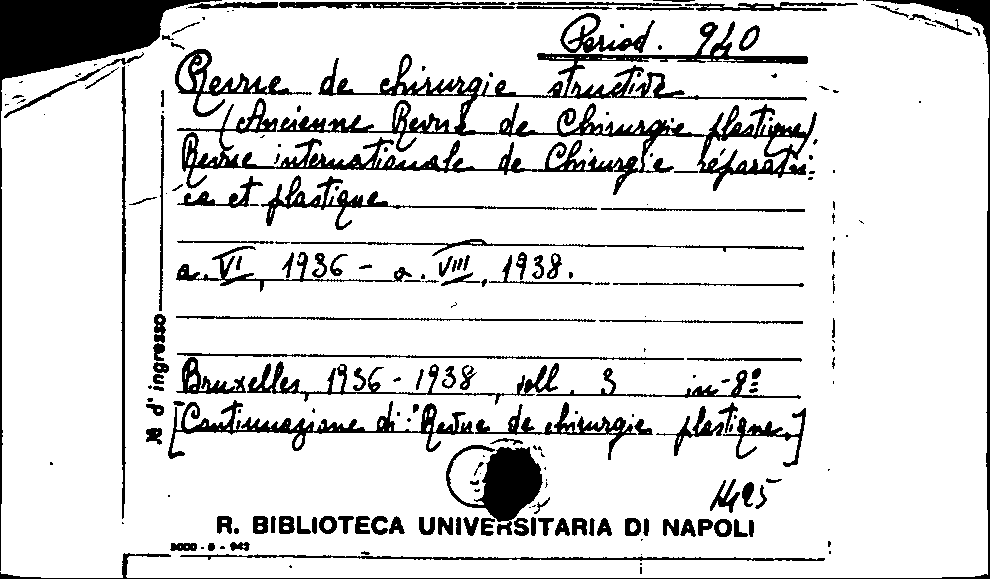 Period. 940
Revue de chirurgie structive
(Ancienne Revue de Chirurgie plastique).
Revue internationale de Chirurgie réparatri-
ce et plastique
a. VI, 1936 - a. VIII, 1938.
Bruxelles, 1936 - 1938, voll. 3 in-8º
[Continuazione di: "Revue de chirurgie plastique.]
d' ingresso
R. BIBLIOTECA UNIVERSITARIA DI NAPOLI